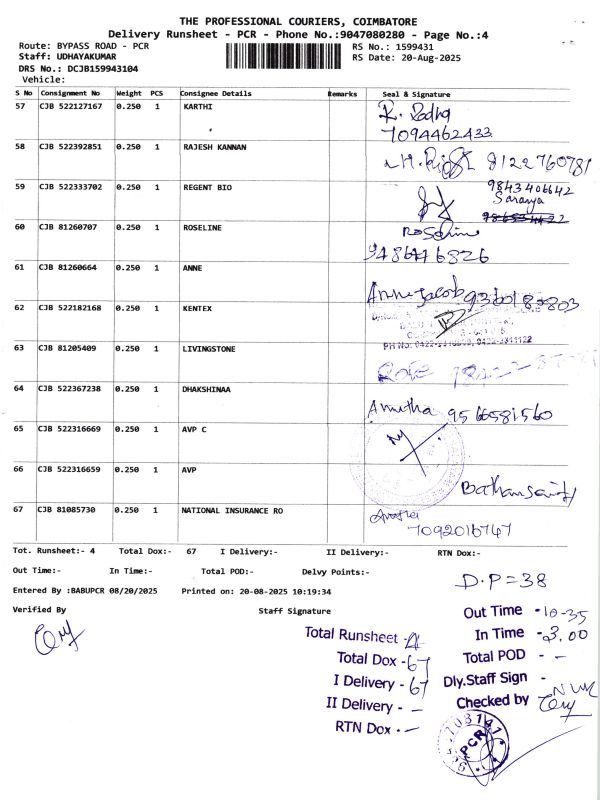 THE PROFESSIONAL COURIERS, COIMBATORE
Delivery Runsheet - PCR - Phone No.:9047080280 - Page No.:4
Route: BYPASS ROAD - PCR
RS No.: 1599431
Staff: UDHAYAKUMAR
RS Date: 20-Aug-2025
DRS No.: DCJB159943104
Vehicle:
S No Consignment No Weight PCS Consignee Details Remarks Seal & Signature
57 CJB 522127167 0.250 1 KARTHI R. Radha
7094462433
58 CJB 522392851 0.250 1 RAJESH KANNAN 8122760781
59 CJB 522333702 0.250 1 REGENT BIO 9843406642
Saranya
60 CJB 81260707 0.250 1 ROSELINE Roseline
61 CJB 81260664 0.250 1 ANNE Anne Jacob
62 CJB 522182168 0.250 1 KENTEX
63 CJB 81205409 0.250 1 LIVINGSTONE
64 CJB 522367238 0.250 1 DHAKSHINAA Amutha 9566581560
65 CJB 522316669 0.250 1 AVP C
66 CJB 522316659 0.250 1 AVP
67 CJB 81085730 0.250 1 NATIONAL INSURANCE RO
7092016747
Tot. Runsheet:- 4 Total Dox:- 67 I Delivery:- II Delivery:- RTN Dox:-
Out Time:- In Time:- Total POD:- Delvy Points:-
D.P=38
Entered By :BABUPCR 08/20/2025 Printed on: 20-08-2025 10:19:34
Verified By Staff Signature
Out Time - 10-35
In Time - 3.00
Total POD - -
Dly.Staff Sign -
Checked by
Total Runsheet - 4
Total Dox - 67
I Delivery - 67
II Delivery - -
RTN Dox - -
PCR